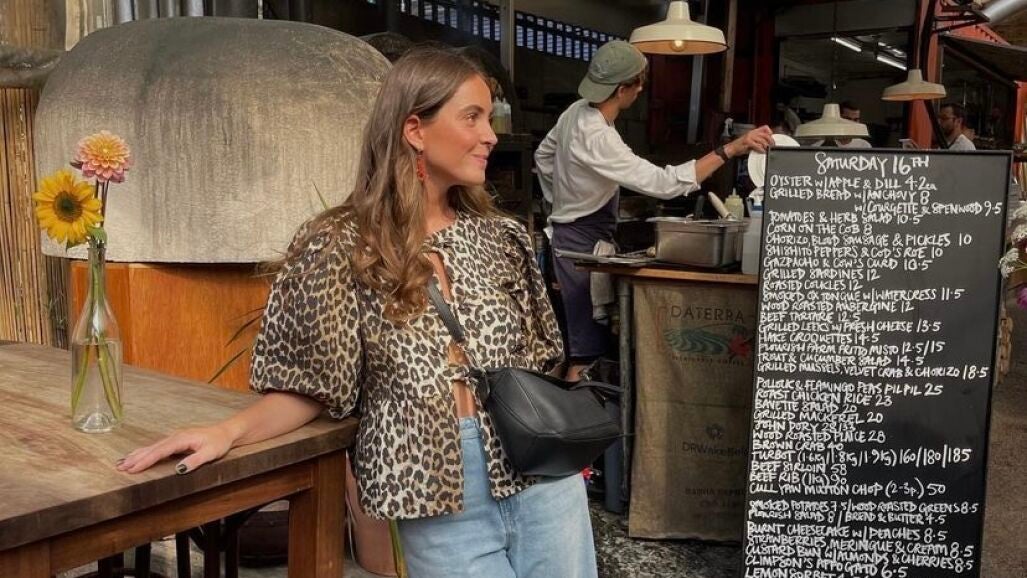 SATURDAY 16TH
OYSTER W/APPLE & DILL 4.2ea
GRILLED BREAD W/ANCHOVY 8
W/COURGETTE & SPENWOOD 9.5
TOMATOES & HERB SALAD 10.5
CORN ON THE COB 8
CHORIZO, BLOOD SAUSAGE & PICKLES 10
SHISHITO PEPPERS & COD'S ROE 10
GAZPACHO & COW'S CURD 10.5
GRILLED SARDINES 12
ROASTED COCKLES 12
SMOKED OX TONGUE W/WATERCRESS 11.5
WOOD ROASTED AUBERGINE 12
BEEF TARTARE 12.5
GRILLED LEEKS W/FRESH CHEESE 13.5
HAKE CROQUETTES 14.5
FLOURISH FARM FRITO MISTO 12.5/15
TROUT & CUCUMBER SALAD 14.5
GRILLED MUSSELS, VELVET CRAB & CHORIZO 18.5
POLLOCK & FLAMINGO PEAS PIL PIL 25
ROAST CHICKEN RICE 23
BAVETTE SALAD 20
GRILLED MACKEREL 20
JOHN DORY 28/33
WOOD ROASTED PLAICE 28
BROWN CRAB 40
TURBOT (1.6kg/1.8kg/1.9kg) 160/180/185
BEEF SIRLOIN 58
BEEF RIB (1kg) 90
CULL YAW MUTTON CHOP (2-3p.) 50
SMOKED POTATOES 7.5/WOOD ROASTED GREENS 8.5
FLOURISH SALAD 8 / BREAD & BUTTER 4.5
BURNT CHEESECAKE W/PEACHES 8.5
STRAWBERRIES, MERINGUE & CREAM 8.5
CUSTARD BUN W/ALMONDS & CHERRIES 8.5
CLIMPSON'S AFFOGATO 6.5
LEMON SORBET
DATERRA
DRWakefield